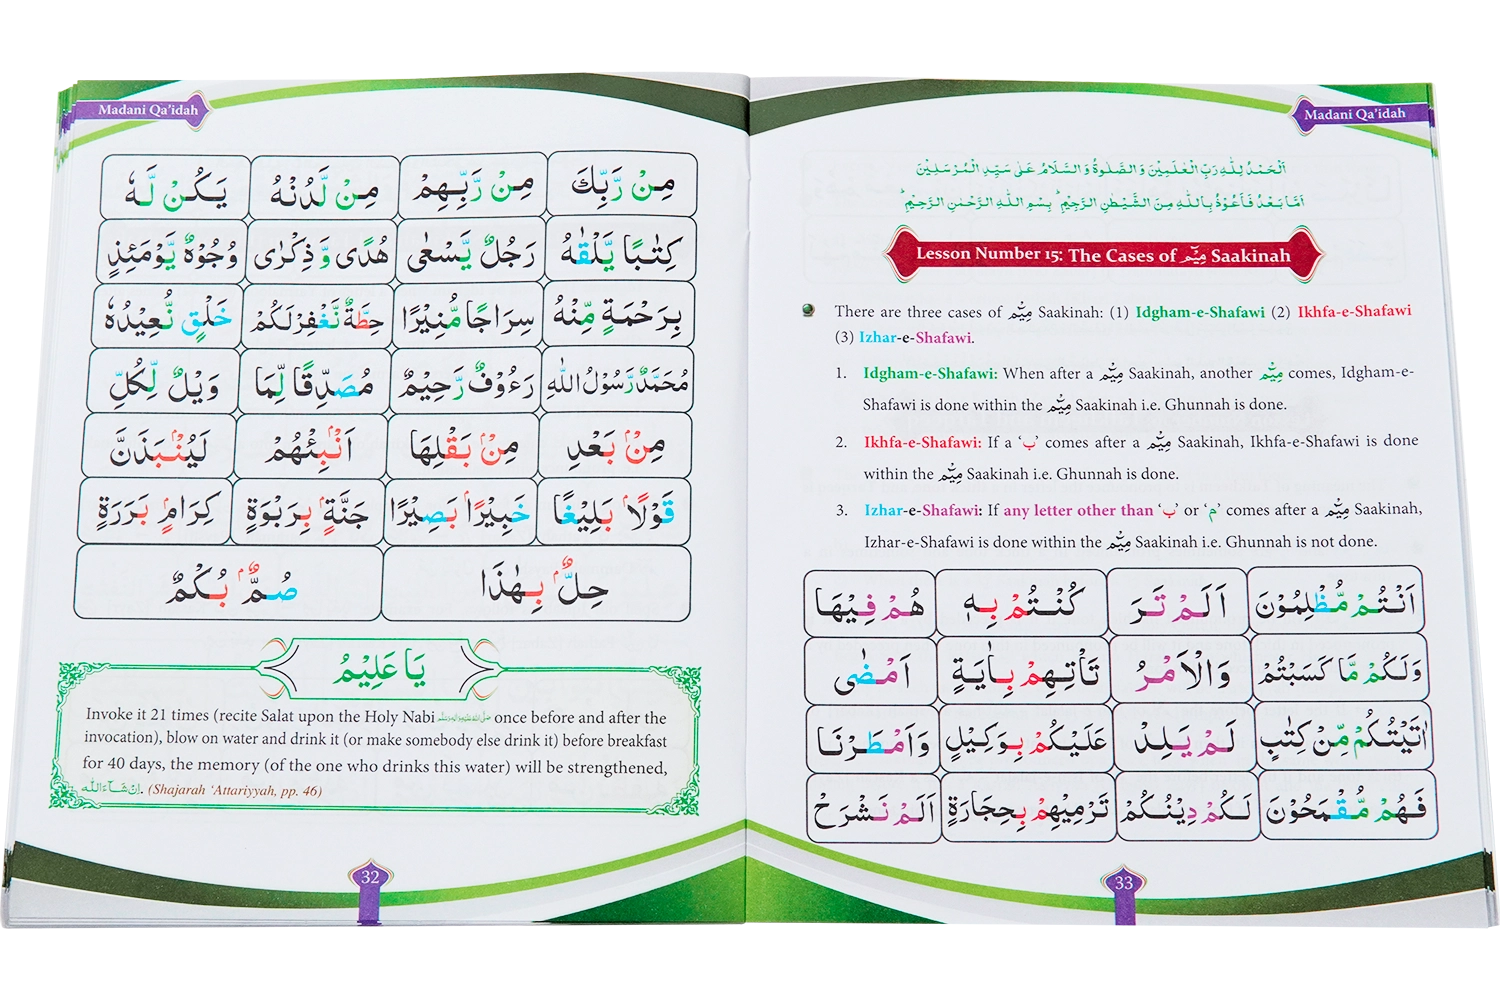 Madani Qa'idah
مِنْ رَّبِّكَ مِنْ رَّبِّهِمْ مِنْ لَّدُنْهُ يَكُنْ لَّهٗ
كِتٰبًا يَّلْقٰىهُ رَجُلٌ يَّسْعٰى هُدًى وَّ ذِكْرٰى وُجُوْهٌ يَّوْمَئِذٍ
بِرَحْمَةٍ مِّنْهُ سِرَاجًا مُّنِيْرًا حِطَّةٌ نَّغْفِرْ لَكُمْ خَلْقٍ نُّعِيْدُهٗ
مُحَمَّدٌ رَّسُوْلُ اللّٰهِ رَءُوْفٌ رَّحِيْمٌ مُصَدِّقًا لِّمَا وَيْلٌ لِّكُلِّ
مِنْۢ بَعْدِ مِنْۢ بَقْلِهَا اَنْۢبِئْهُمْ لَيُنْۢبَذَنَّ
قَوْلًاۢ بَلِيْغًا خَبِيْرًاۢ بَصِيْرًا جَنَّةٍۭ بِرَبْوَةٍ كِرَامٍۭ بَرَرَةٍ
حِلٌّۢ بِهٰذَا صُمٌّۢ بُكْمٌ
يَا عَلِيْمُ
Invoke it 21 times (recite Salat upon the Holy Nabi صَلَّى اللّٰهُ عَلَيْهِ وَاٰلِهٖ وَسَلَّم once before and after the
invocation), blow on water and drink it (or make somebody else drink it) before breakfast
for 40 days, the memory (of the one who drinks this water) will be strengthened,
اِنْ شَآءَ اللّٰه. (Shajarah ‘Attariyyah, pp. 46)
32
Madani Qa'idah
اَلْحَمْدُ لِلّٰهِ رَبِّ الْعٰلَمِيْنَ وَ الصَّلٰوةُ وَ السَّلَامُ عَلٰى سَيِّدِ الْمُرْسَلِيْنَ
اَمَّا بَعْدُ فَاَعُوْذُ بِاللّٰهِ مِنَ الشَّيْطٰنِ الرَّجِيْمِ ؕ بِسْمِ اللّٰهِ الرَّحْمٰنِ الرَّحِيْمِ ؕ
Lesson Number 15: The Cases of مِيْم Saakinah
There are three cases of مِيْم Saakinah: (1) Idgham-e-Shafawi (2) Ikhfa-e-Shafawi
(3) Izhar-e-Shafawi.
1. Idgham-e-Shafawi: When after a مِيْم Saakinah, another مِيْم comes, Idgham-e-
Shafawi is done within the مِيْم Saakinah i.e. Ghunnah is done.
2. Ikhfa-e-Shafawi: If a ‘ب’ comes after a مِيْم Saakinah, Ikhfa-e-Shafawi is done
within the مِيْم Saakinah i.e. Ghunnah is done.
3. Izhar-e-Shafawi: If any letter other than ‘ب’ or ‘م’ comes after a مِيْم Saakinah,
Izhar-e-Shafawi is done within the مِيْم Saakinah i.e. Ghunnah is not done.
اَنْتُمْ مُّظْلِمُوْنَ اَلَمْ تَرَ كُنْتُمْ بِهٖ هُمْ فِيْهَا
وَلَكُمْ مَّا كَسَبْتُمْ وَالْاَمْرُ تَاْتِهِمْ بِاٰيَةٍ اَمْضٰى
اٰتَيْتُكُمْ مِّنْ كِتٰبٍ لَمْ يَلِدْ عَلَيْكُمْ بِوَكِيْلٍ وَاَمْطَرْنَا
فَهُمْ مُّقْمَحُوْنَ لَكُمْ دِيْنُكُمْ تَرْمِيْهِمْ بِحِجَارَةٍ اَلَمْ نَشْرَحْ
33